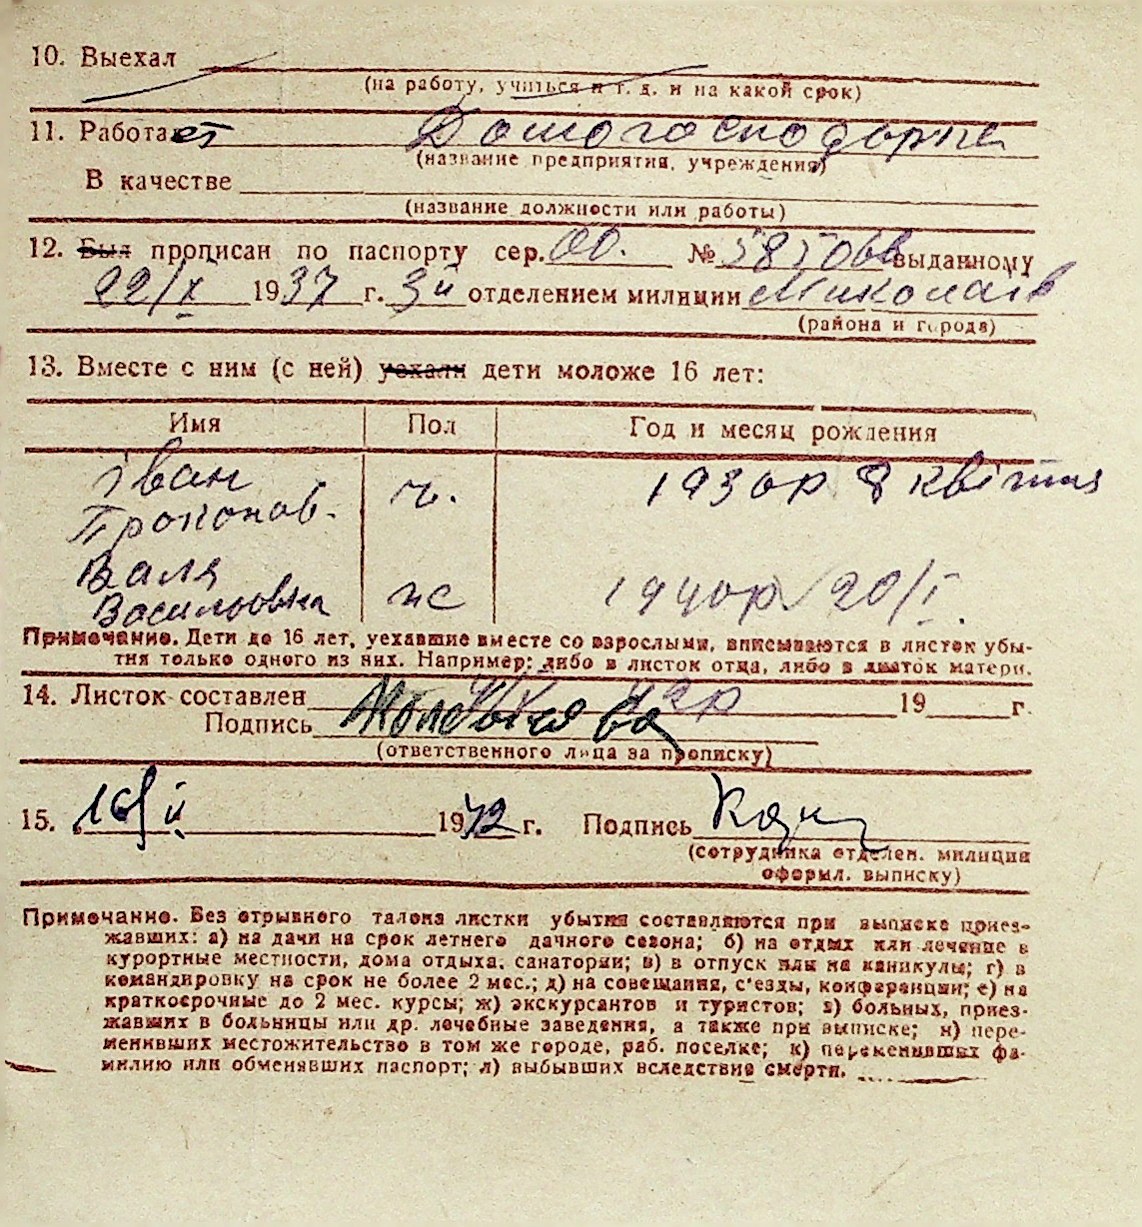 10. Выехал
(на работу, учиться и т. д. и на какой срок)
11. Работает Домогосподарка
(название предприятия, учреждения)
В качестве
(название должности или работы)
12. Был прописан по паспорту сер. № выданному
22/X 1937 г. 3й отделением милиции Миколаїв
(района и города)
13. Вместе с ним (с ней) уехали дети моложе 16 лет:
Имя Пол Год и месяц рождения
Іван ч. 1930р 8 квітня
Прокопов.
Валя ж 1940р 20/I.
Василовна
Примечание. Дети до 16 лет, уехавшие вместе со взрослыми, вписываются в листок убы-
тия только одного из них. Например: либо в листок отца, либо в листок матери.
14. Листок составлен 42р 19 г.
Подпись
(ответственного лица за прописку)
15. 1942 г. Подпись
(сотрудника отделен. милиции
оформл. выписку)
Примечание. Без отрывного талона листки убытия составляются при выписке приез-
жавших: а) на дачи на срок летнего дачного сезона; б) на отдых или лечение в
курортные местности, дома отдыха, санатории; в) в отпуск или на каникулы; г) в
командировку на срок не более 2 мес.; д) на совещания, с'езды, конференции; е) на
краткосрочные до 2 мес. курсы; ж) экскурсантов и туристов; з) больных, приез-
жавших в больницы или др. лечебные заведения, а также при выписке; и) пере-
менивших местожительство в том же городе, раб. поселке; к) переменивших фа-
милию или обменявших паспорт; л) выбывших вследствие смерти.